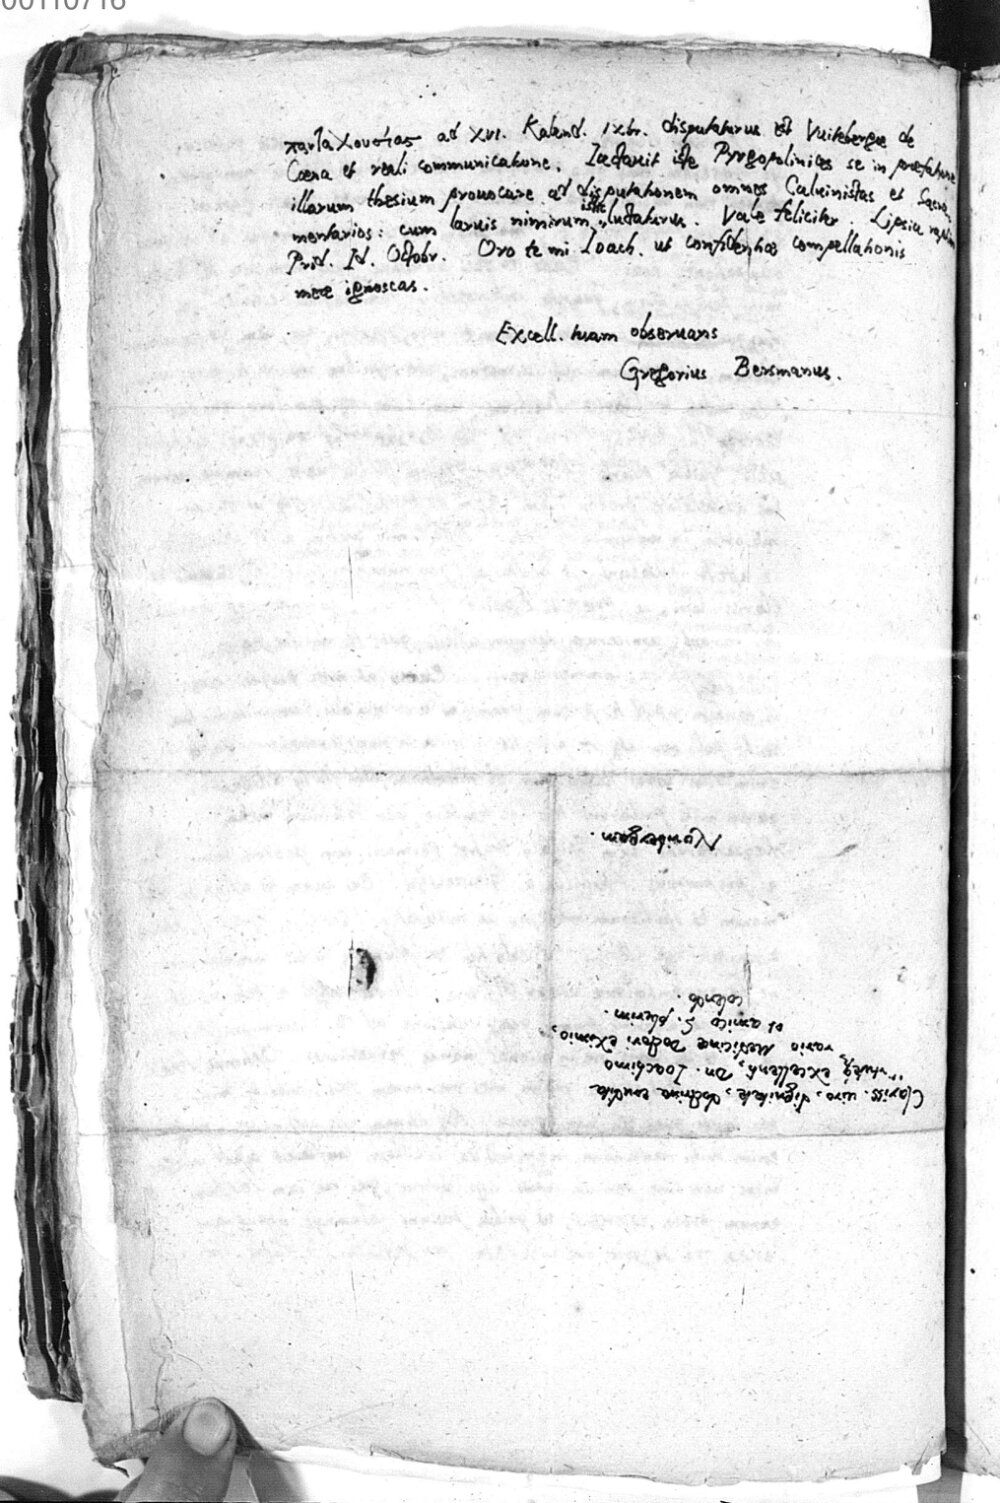 00110716
πανταχουσίας ad XVI. Kalend. IXbr. disputaturus est Vuitebergæ de
Cœna et reali communicatione. Iactauit iste Pyrgopolinices se in præfatione
illarum thesium prouocare ad disputationem omnes Caluinistas et Sacra
mentarios: cum laruis nimirum iste luctaturus. Vale feliciter. Lipsiæ raptim
Prid. Id. Octobr. Oro te mi Ioach. ut confidentiæ compellationis
meæ ignoscas.
Excell. tuam obseruans
Gregorius Bersmanus.
Noribergam.
Clariss. uiro, dignitate, doctrina erudita
virtuteq́ excellenti, Dn. Ioachimo
rario Medicinæ Doctori eximio,
et amico S. plurim.
colendo.